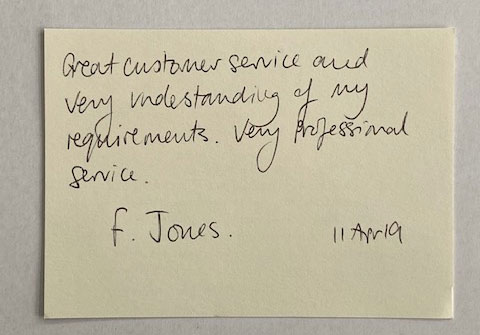 Great customer service and
very understanding of my
requirements. Very professional
service.
F. Jones.
11 Apr 19